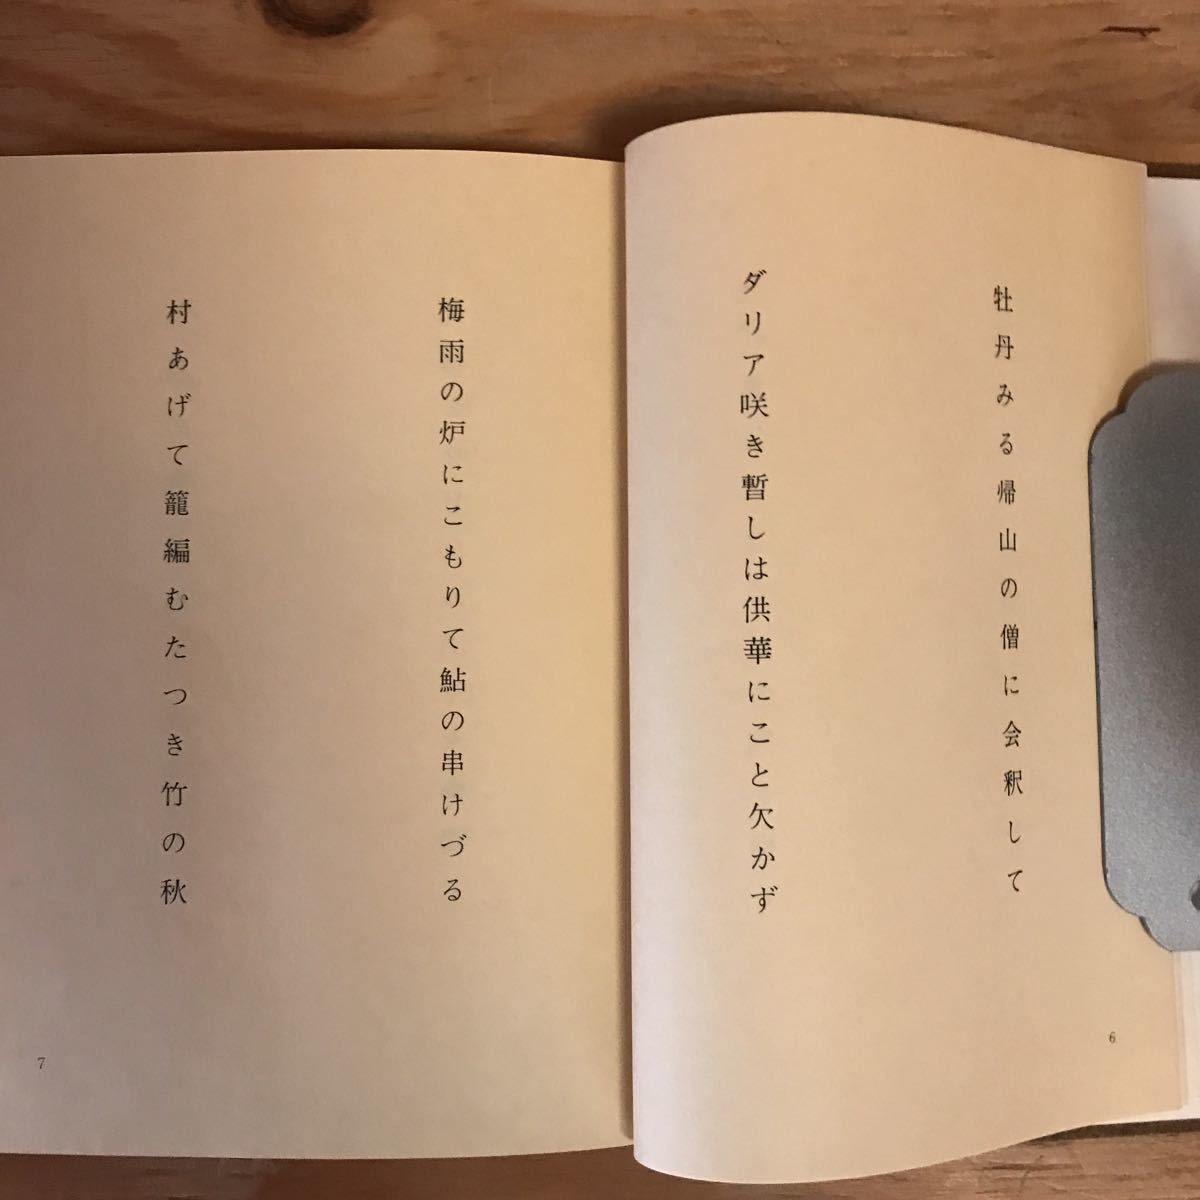 牡丹みる帰山の僧に会釈して
ダリア咲き暫しは供華にこと欠かず
6
梅雨の炉にこもりて鮎の串けづる
村あげて籠編むたつき竹の秋
7